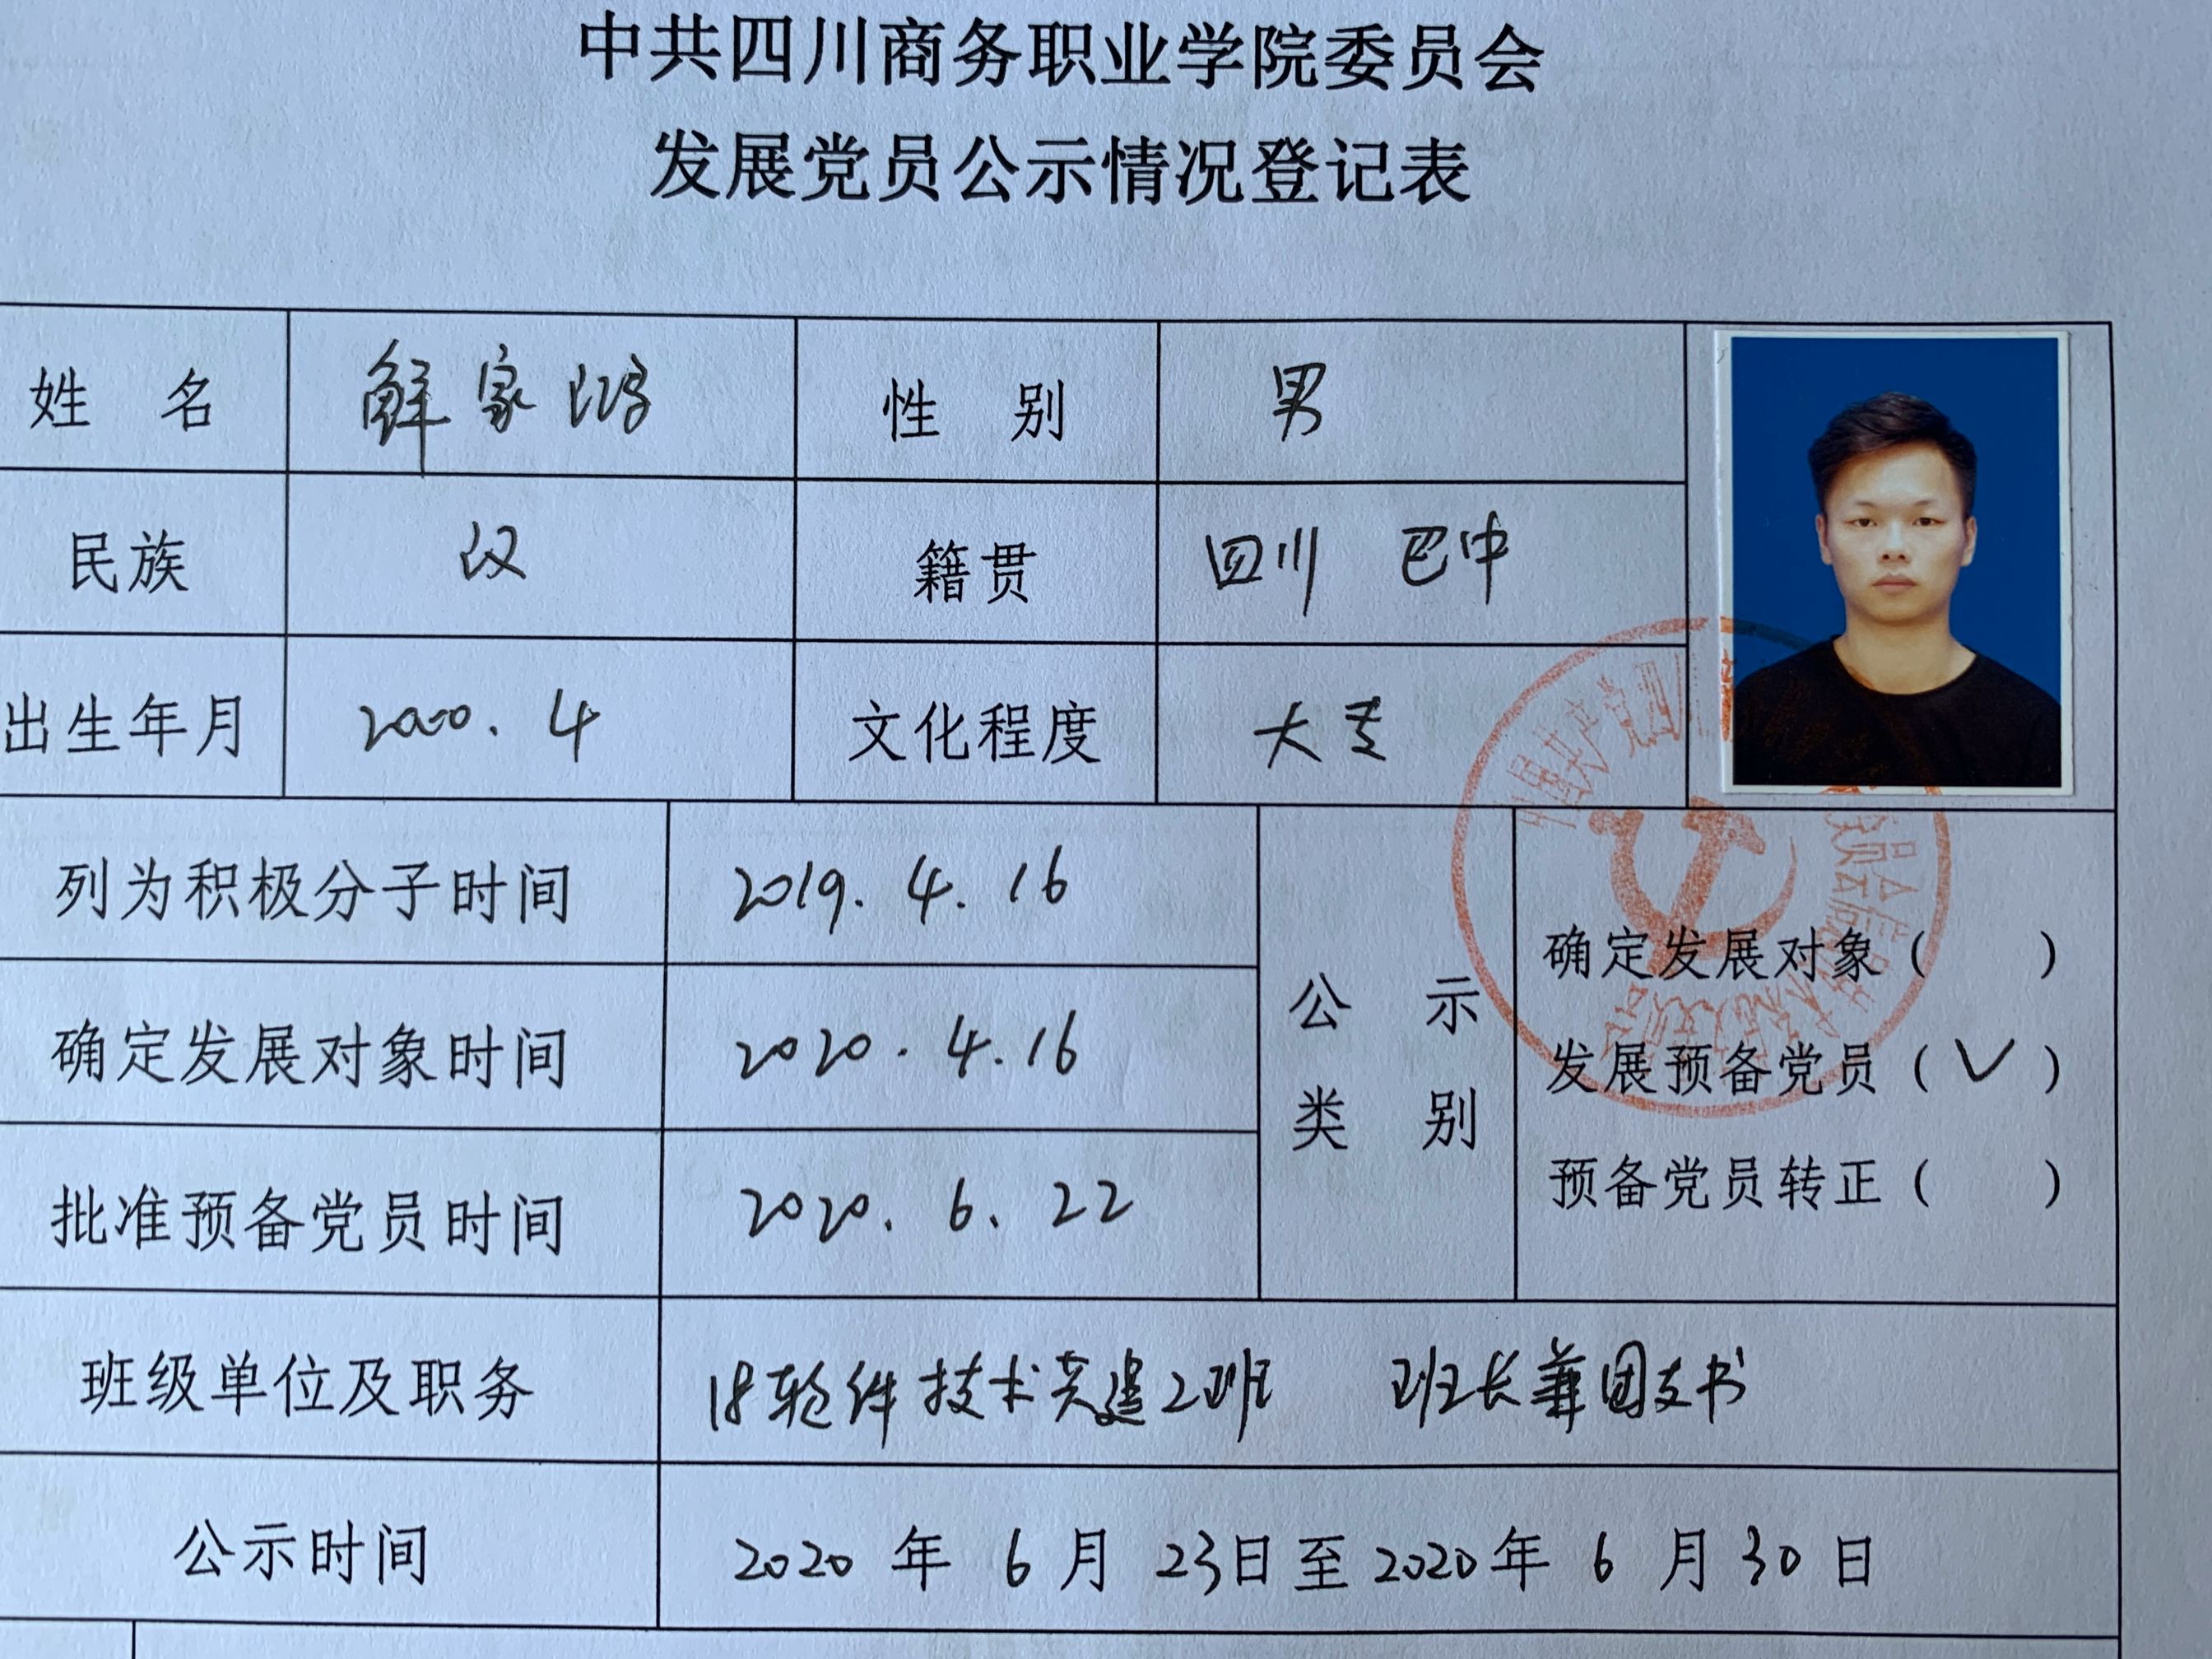 中共四川商务职业学院委员会
发展党员公示情况登记表
姓 名 鲜家鸿 性 别 男
民族 汉 籍贯 四川 巴中
出生年月 2000.4 文化程度 大专
列为积极分子时间 2019.4.16
确定发展对象时间 2020.4.16
批准预备党员时间 2020.6.22
公示
类别
确定发展对象( )
发展预备党员(√)
预备党员转正( )
班级单位及职务 18软件技术共建2班 班长兼团支书
公示时间 2020年6月23日至2020年6月30日
中国共产党四川